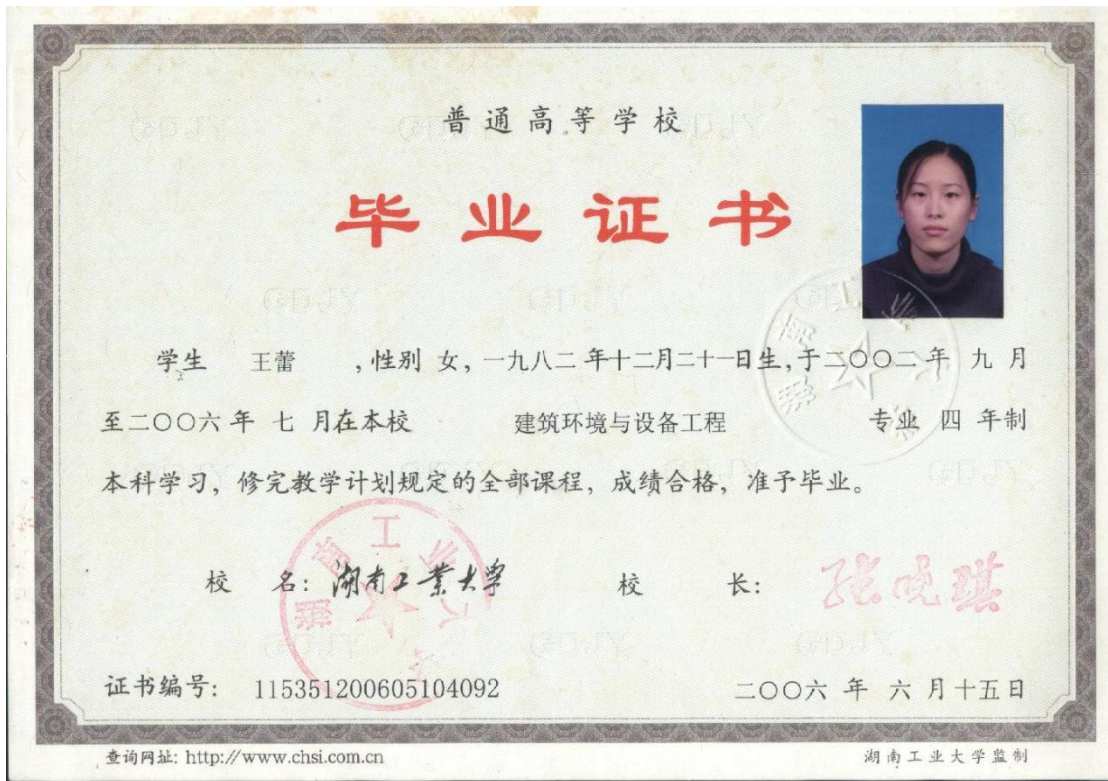 普通高等学校
毕业证书
学生 王蕾 ，性别 女，一九八二 年十二月二十一日生，于二〇〇二年 九 月
至二〇〇六年 七 月在本校 建筑环境与设备工程 专业 四 年制
本科学习，修完教学计划规定的全部课程，成绩合格，准予毕业。
校 名：湖南工業大學 校 长：张晓琪
湖南工业大学
湖南工业大学
证书编号： 115351200605104092 二〇〇六 年 六 月十五日
查询网址: http://www.chsi.com.cn 湖南工业大学监制